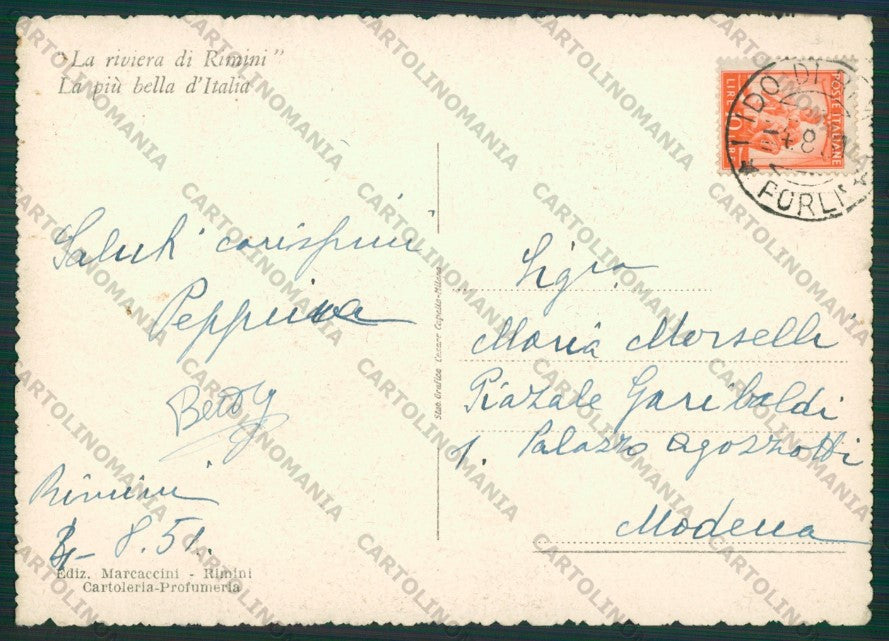 "La riviera di Rimini"
La più bella d'Italia
Saluti carissimi
Peppina
Betty
Rimini
8.51.
Ediz. Marcaccini - Rimini
Cartoleria-Profumeria
Stab. Grafico Cesare Capello-Milano
POSTE ITALIANE
LIRE 10
LIDO DI
FORLI
Sigra
Maria Morselli
Piazale Garibaldi
1. Palazzo Agozzotti
Modena
CARTOLINOMANIA